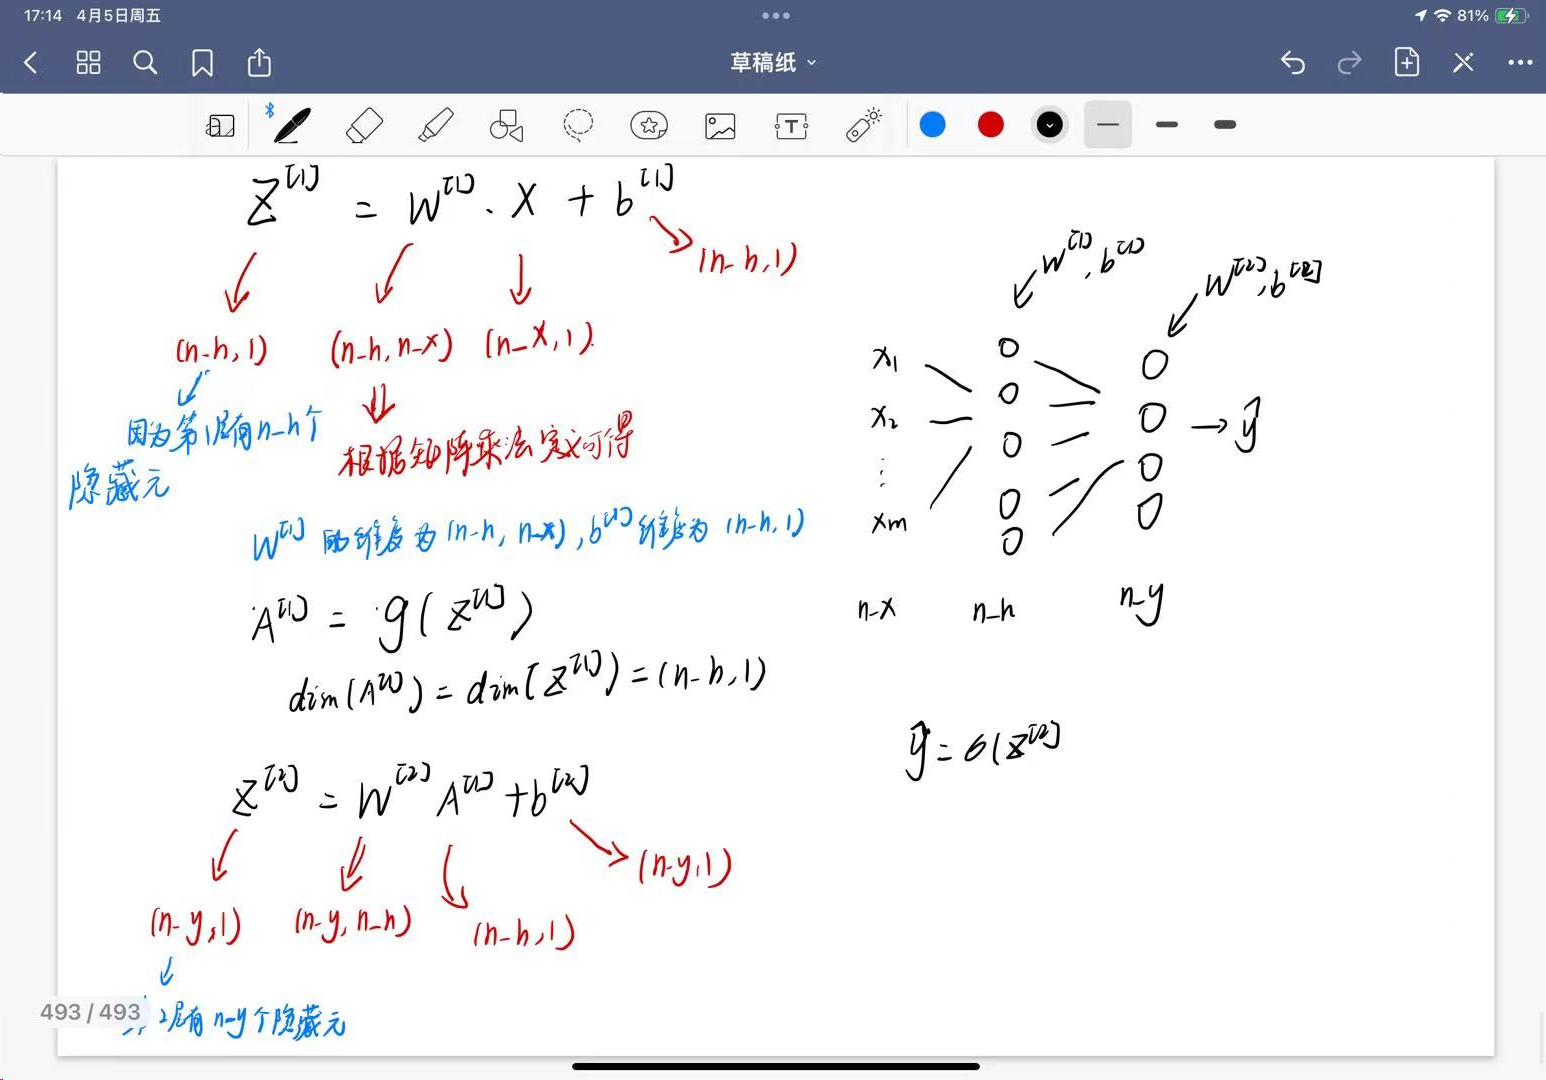 17:14 4月5日周五
81%
草稿纸
Z[1] = W[1] · X + b[1]
(n-h,1)
(n-h,1) (n-h,n-x) (n-x,1)
因为第1层有n-h个
隐藏元
根据矩阵乘法定义可得
W[1] 的维度为(n-h, n-x), b[1]维度为 (n-h,1)
A[1] = g(Z[1])
dim(A[1]) = dim(Z[1]) = (n-h,1)
Z[2] = W[2] A[1] + b[2]
(n-y,1)
(n-y,1) (n-y,n-h) (n-h,1)
2层有 n-y个隐藏元
493 / 493
W[1], b[1]
W[2], b[2]
x1
x2
⋮
xm
→ ŷ
n-x n-h n-y
ŷ = σ(Z[2]